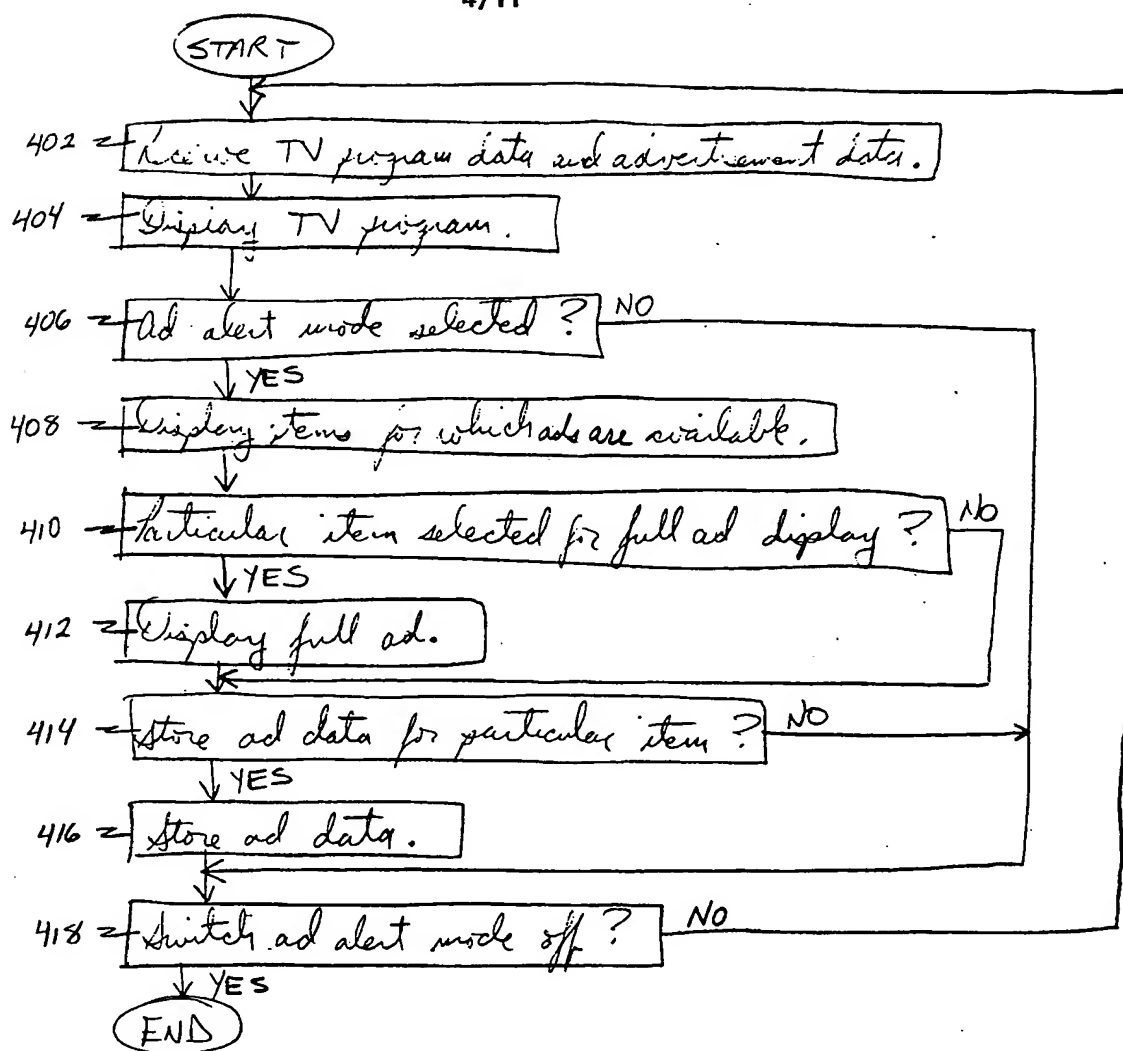 4/11
START
402 Receive TV program data and advertisement data.
404 Display TV program.
406 Ad alert mode selected? NO
YES
408 Display items for which ads are available.
410 Particular item selected for full ad display? NO
YES
412 Display full ad.
414 Store ad data for particular item? NO
YES
416 Store ad data.
418 Switch ad alert mode off? NO
YES
END